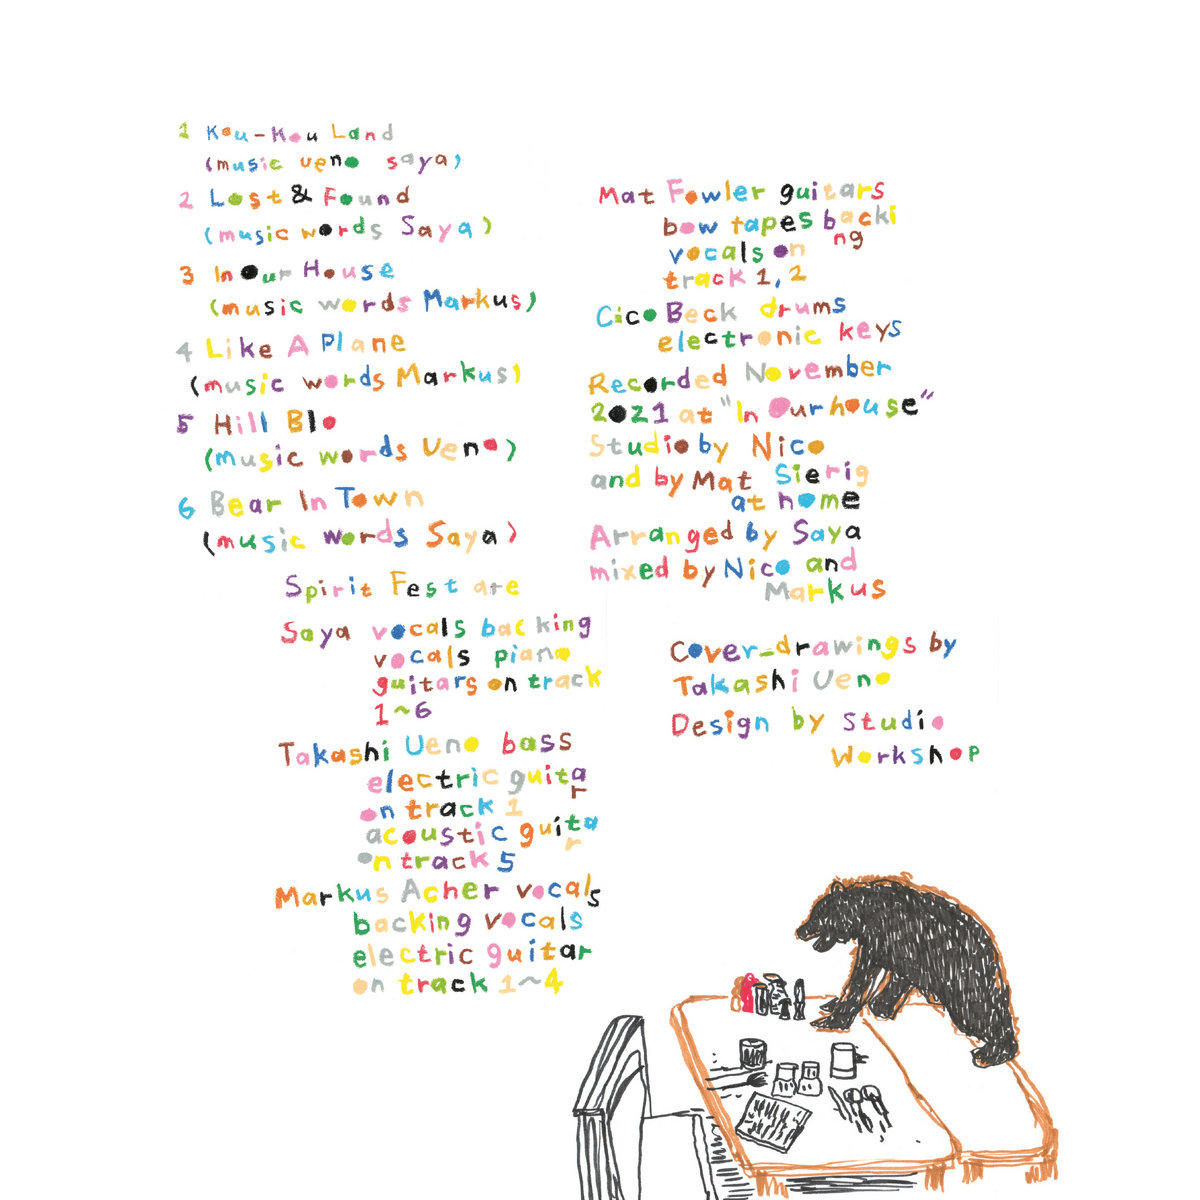 1 Kou-Kou Land
(music ueno saya)
2 Lost & Found
(music words Saya)
3 In Our House
(music words Markus)
4 Like A Plane
(music words Markus)
5 Hill Blo
(music words Ueno)
6 Bear In Town
(music words Saya)
Spirit Fest are
Saya vocals backing
vocals piano
guitars on track
1~6
Takashi Ueno bass
electric guitar
on track 1
acoustic guitar
on track 5
Markus Acher vocals
backing vocals
electric guitar
on track 1~4
Mat Fowler guitars
bow tapes backi
ng
vocals on
track 1,2
Cico Beck drums
electronic keys
Recorded November
2021 at "In Our house"
Studio by Nico
and by Mat Sierig
at home
Arranged by Saya
mixed by Nico and
Markus
Cover-drawings by
Takashi Ueno
Design by Studio
Workshop